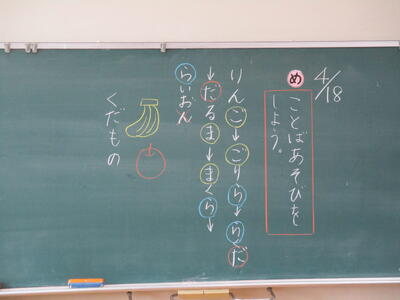 4/18
め
ことばあそびを
しよう。
りんご→ごりら→らくだ
→だるま→まくら→
らいおん
くだもの